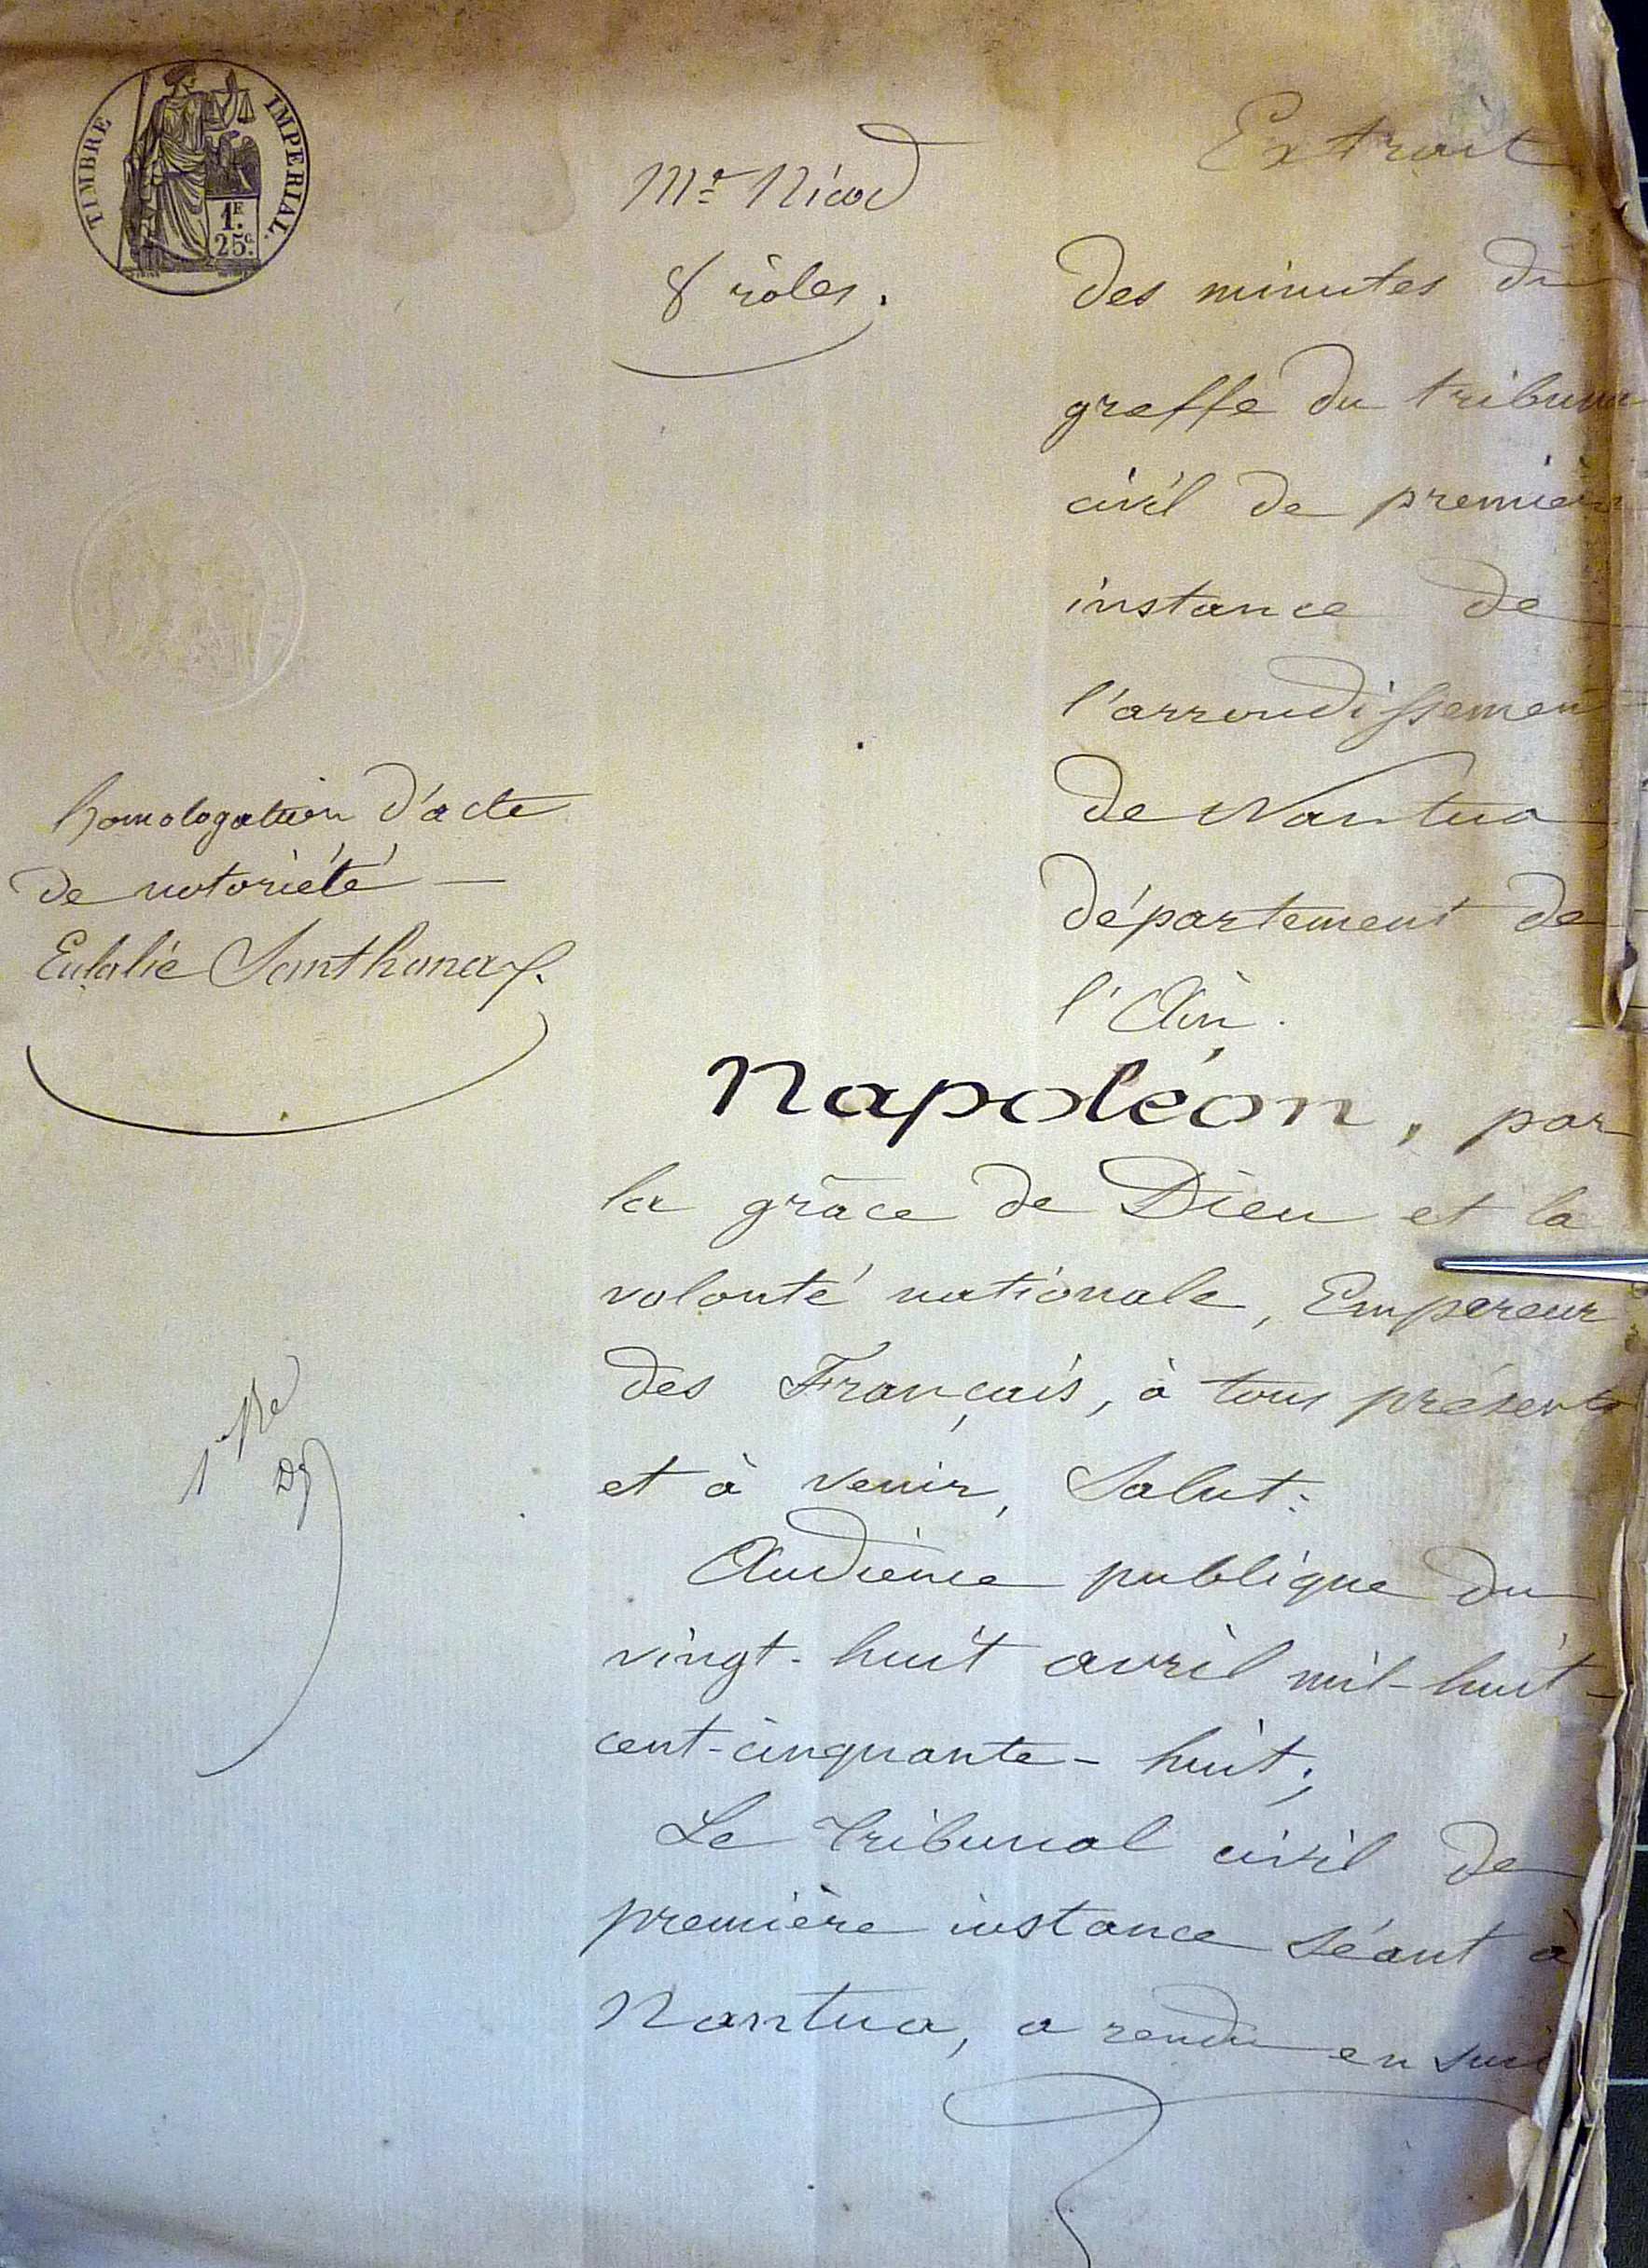 TIMBRE IMPERIAL.
1F.
25c.
Me Nicod
8 rôles.
Extrait
des minutes du
greffe du tribuna
civil de premièr
instance de
l'arrondissement
de Nantua,
département de
l'Ain.
homologation d'acte
de notoriété —
Eulalie Santhonax.
Napoléon, par
la grâce de Dieu et la
volonté nationale, Empereur
des Français, à tous présents
et à venir, Salut:
Audience publique du
vingt-huit avril mil-huit-
cent-cinquante-huit;
Le Tribunal civil de
première instance séant à
Nantua, a rendu en sui